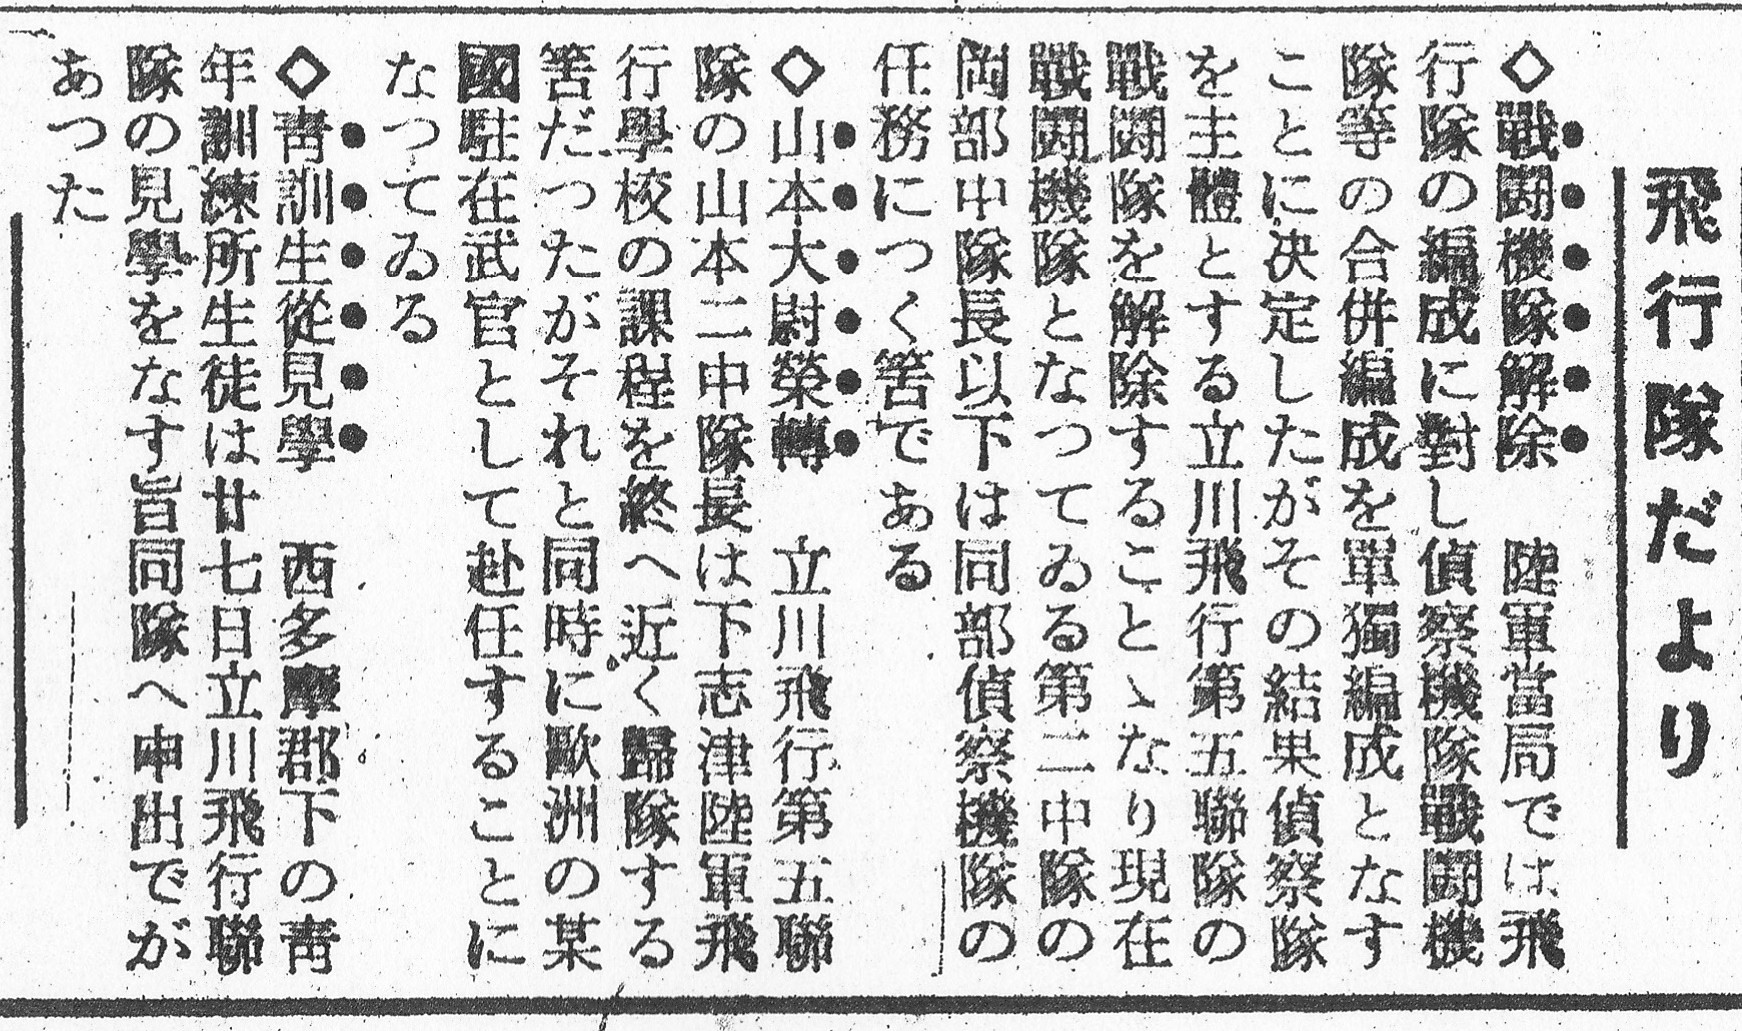 飛行隊だより
◇戰鬪機隊解除　陸軍當局では飛
行隊の編成に對し偵察機隊戰鬪機
隊等の合併編成を單獨編成となす
ことに決定したがその結果偵察隊
を主體とする立川飛行第五聯隊の
戰鬪隊を解除することゝなり現在
戰鬪機隊となつてゐる第二中隊の
岡部中隊長以下は同部偵察機隊の
任務につく筈である
◇山本大尉榮轉　立川飛行第五聯
隊の山本二中隊長は下志津陸軍飛
行學校の課程を終へ近く歸隊する
筈だつたがそれと同時に歐洲の某
國駐在武官として赴任することに
なつてゐる
◇靑訓生從見學　西多摩郡下の靑
年訓練所生徒は廿七日立川飛行聯
隊の見學をなす旨同隊へ申出でが
あつた